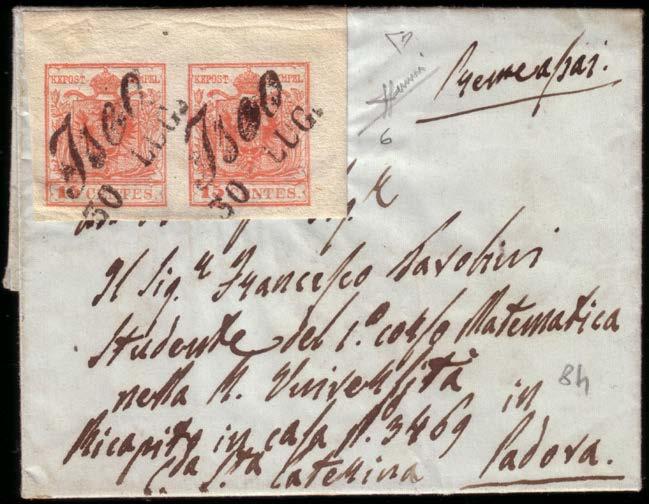 KKPOST-STEMPEL KKPOST-STEMPEL
Iseo Iseo
30 LUG. 30 LUG.
15 CENTES. 15 CENTES.
Preme assai.
6
Il Sig.r Francesco
Studente del 1.o corso Matematica
nella R. Università
84
in
Ricapito in casa N.o 3469
Padova.
S.ta Caterina